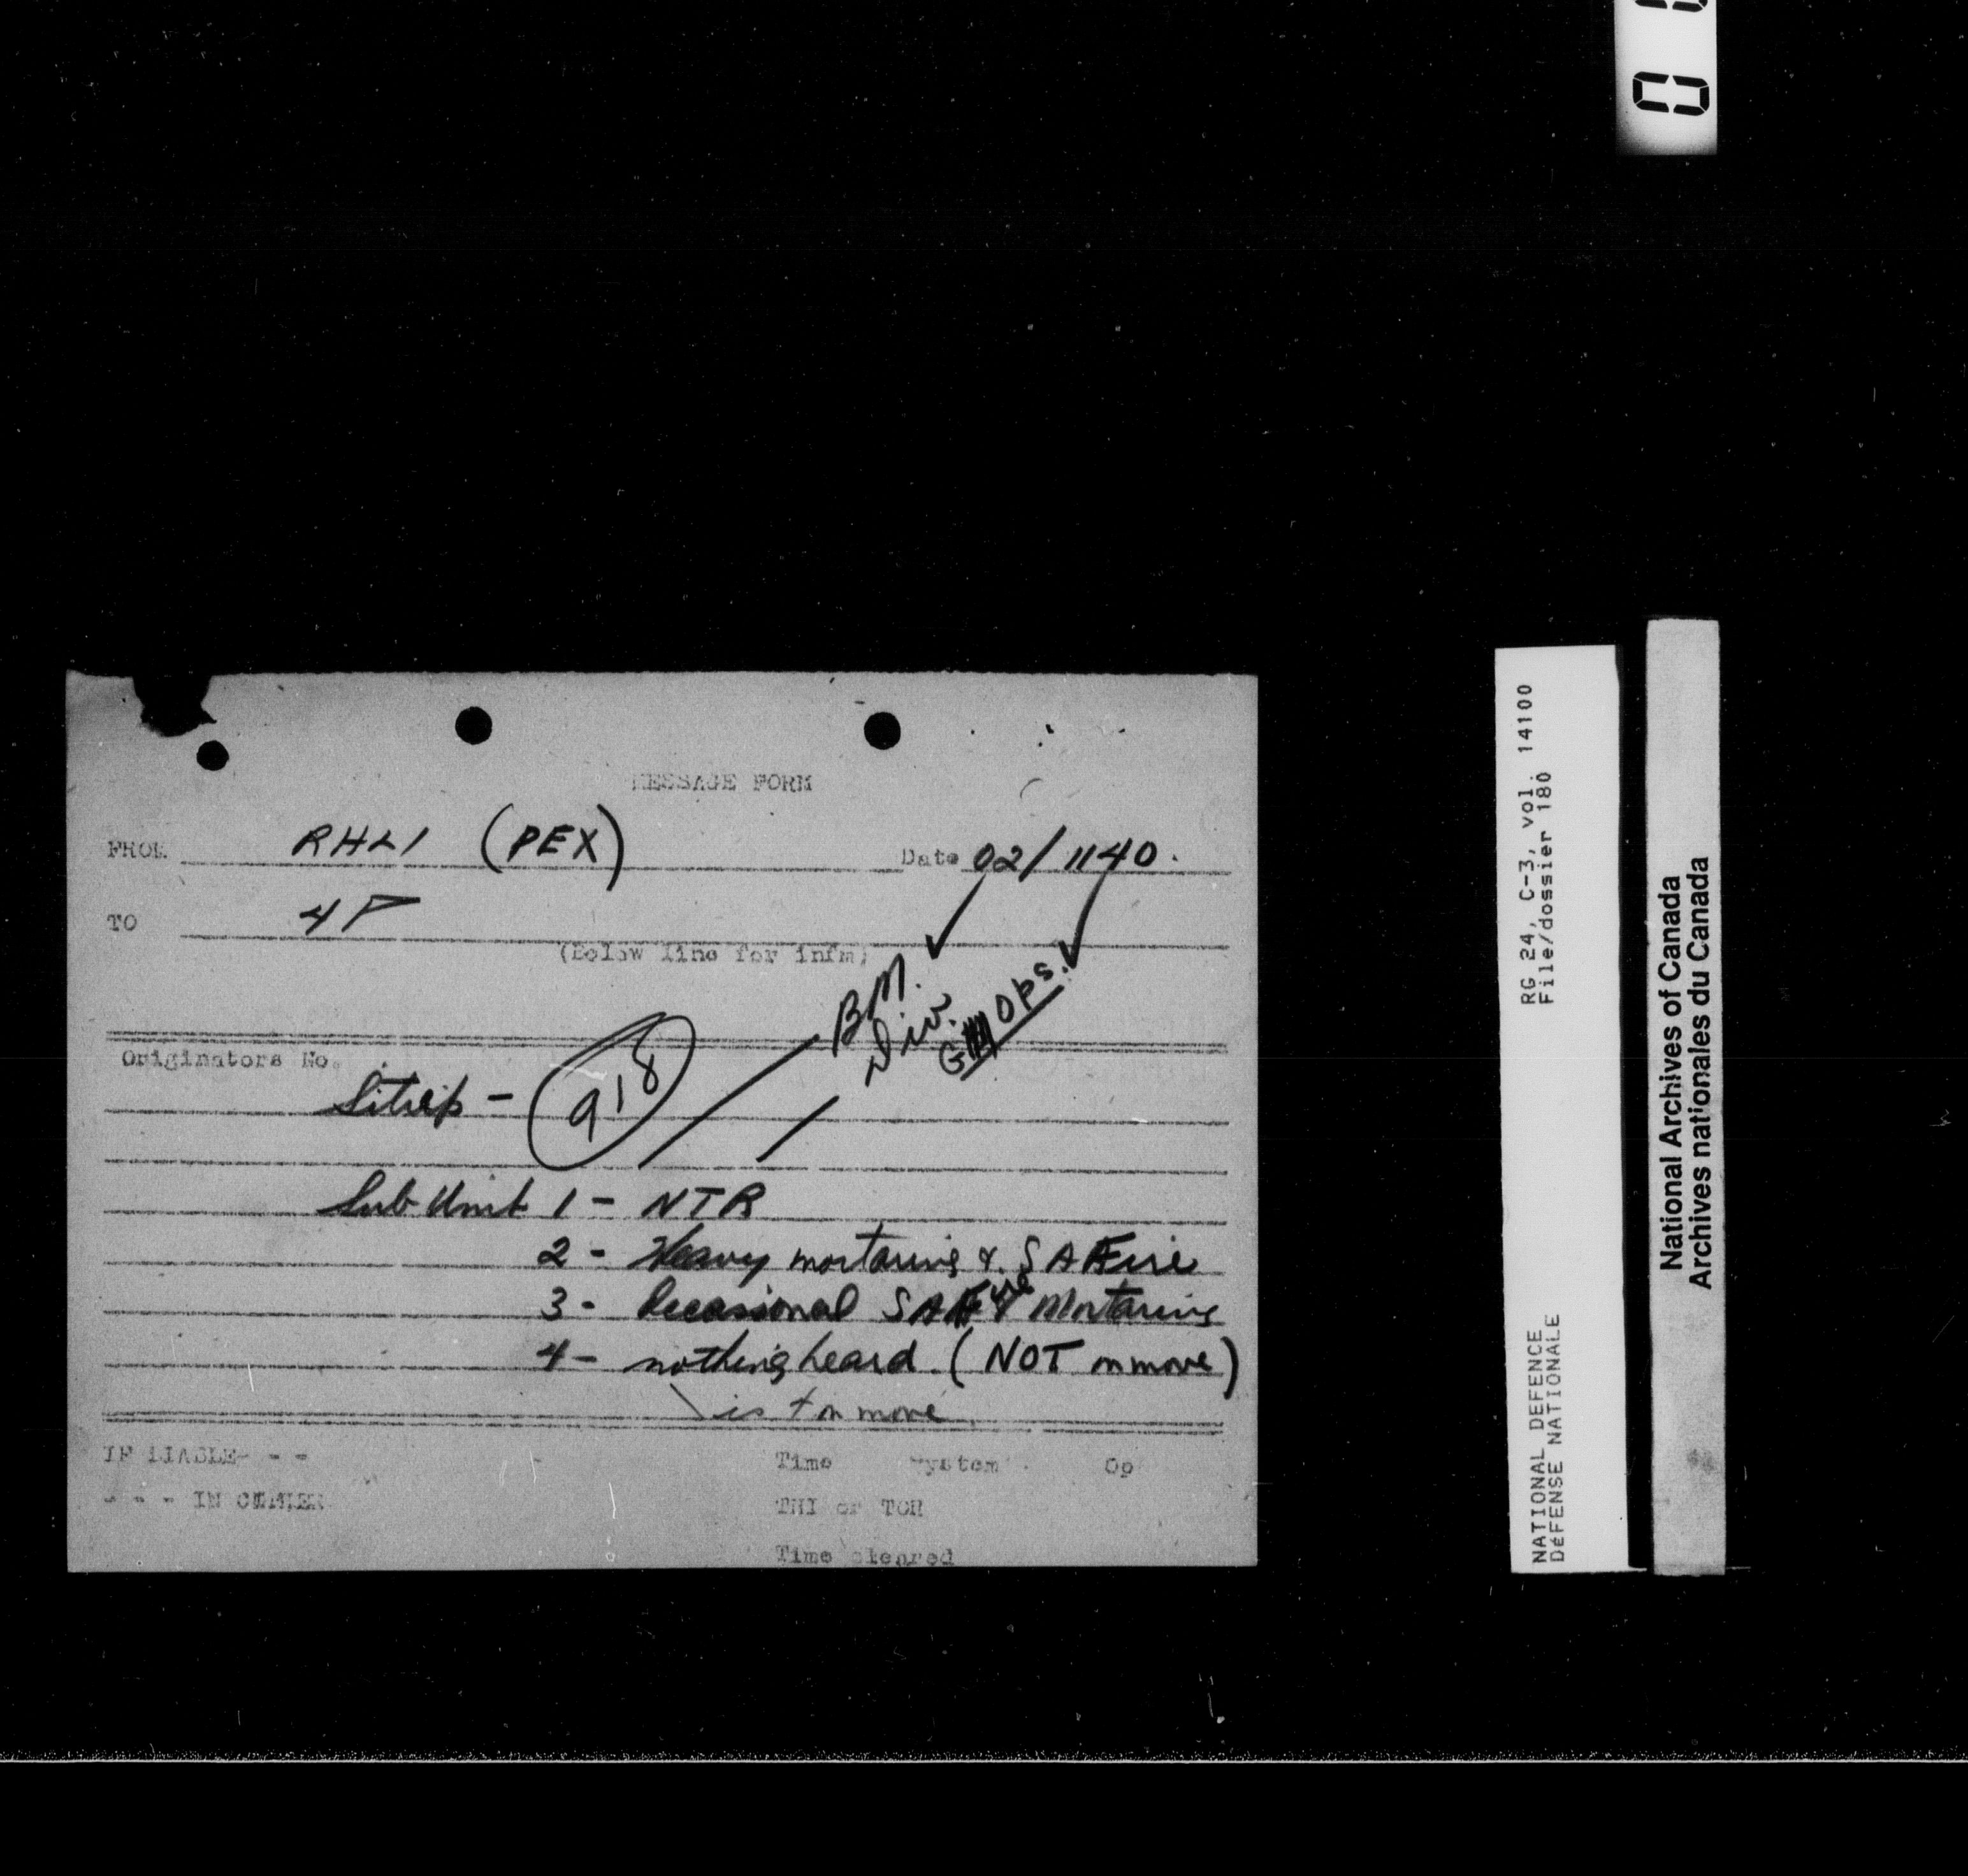 MESSAGE FORM
FROM RHLI (PEX) Date 02/1140.
TO 4
(Below line for infm)
BM.
Div.
G Ops.
Originators No.
Sitrep - 918
Sub Unit 1 - NTR
2 - Heavy mortaring & SA Fire
3 - Occasional SA Fire & Mortaring
4 - nothing heard. (NOT on move)
is + on move
IF LIABLE- - -
- - - IN CIPHER
Time System Op
THI or TOR
Time cleared
RG 24, C-3, vol. 14100
File/dossier 180
NATIONAL DEFENCE
DéFENSE NATIONALE
National Archives of Canada
Archives nationales du Canada
0